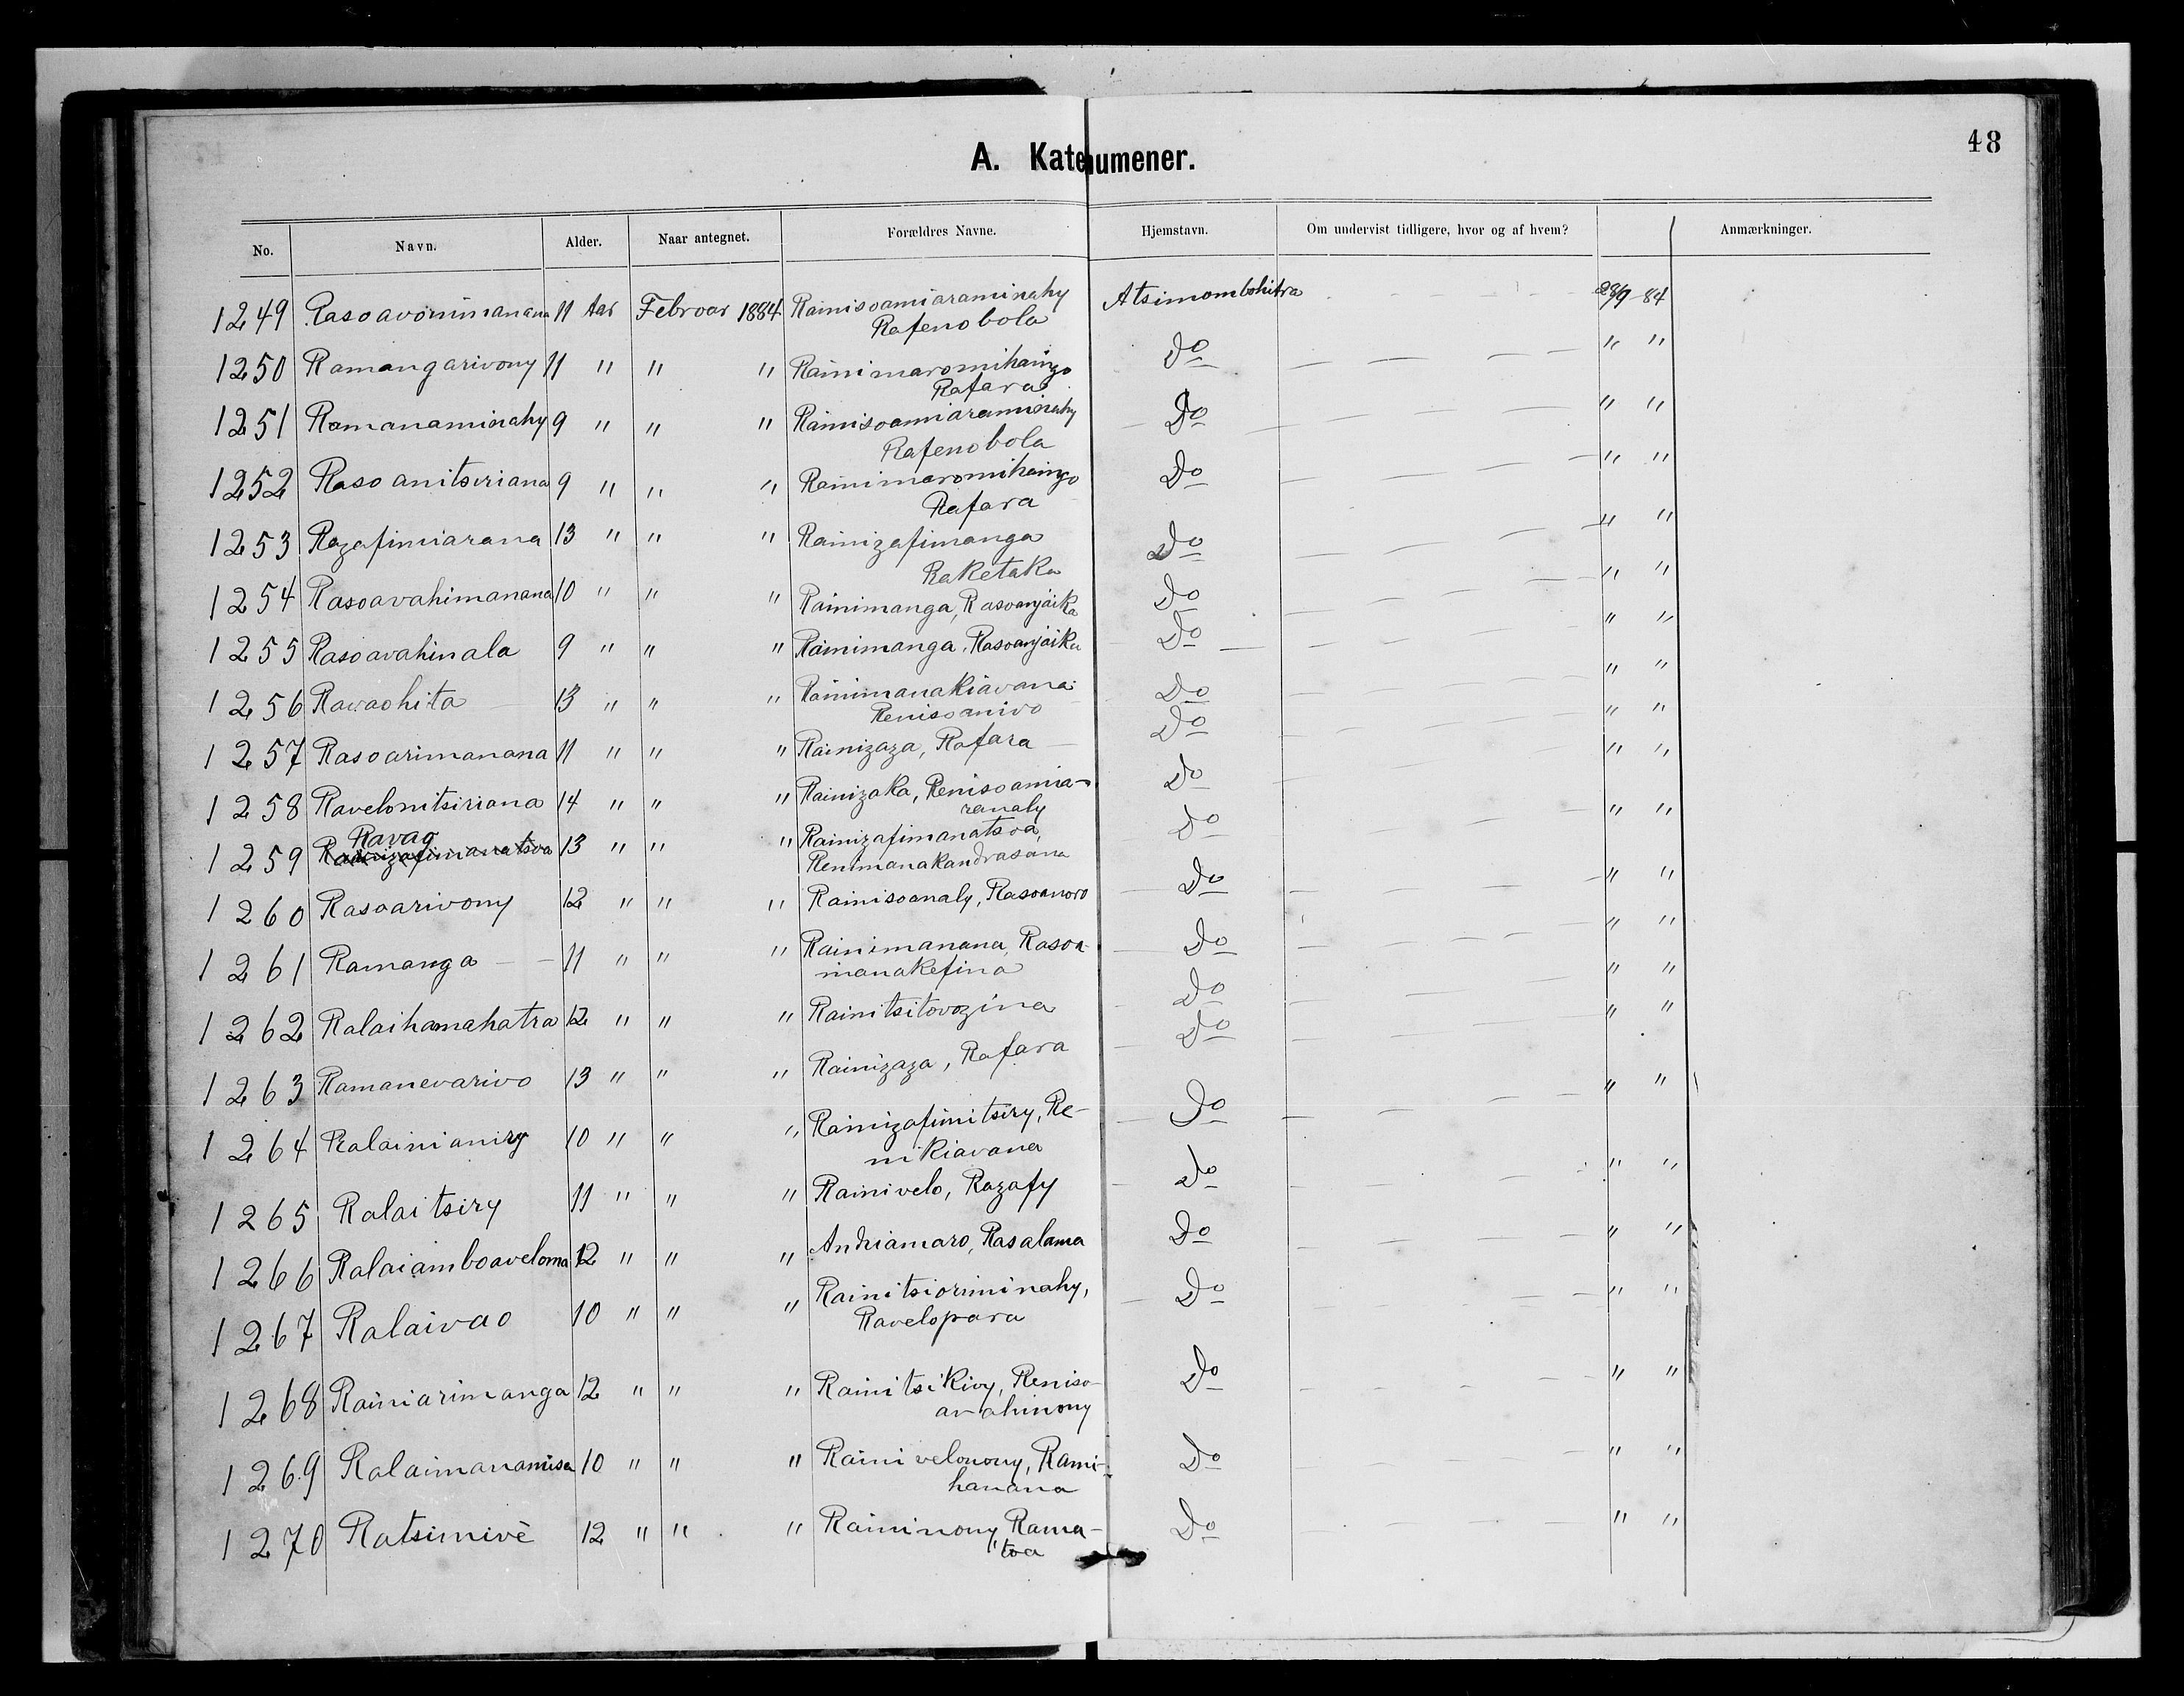 48
A. Katekumener.
No. Navn. Alder. Naar antegnet. Forældres Navne. Hjemstavn. Om undervist tidligere, hvor og af hvem? Anmærkninger.
1249 Rasoavonimanana 11 Aar Februar 1884 Rainisoamiaraminahy Atsimombohitra 28/9-84
Rafenobola
1250 Ramangarivony 11 " " " Rainimaromihaingo Do " "
Rafara
1251 Ramanaminahy 9 " " " Rainisoamiaraminahy Do " "
Rafenobola
1252 Rasoanitsiriana 9 " " " Rainimaromihaingo Do " "
Rafara
1253 Razafimiarana 13 " " " Rainizafimanga Do " "
Raketaka
1254 Rasoavahimanana 10 " " " Rainimanga, Rasoanjaika Do " "
1255 Rasoavahinala 9 " " " Rainimanga, Rasoanjaika Do " "
1256 Ravaohita 13 " " " Rainimanakiavana Do " "
Renisoanivo
1257 Rasoarimanana 11 " " " Rainizaza, Rafara Do " "
1258 Ravelonitsiriana 14 " " " Rainizaka, Renisoamia- Do " "
ranaly
Ravao
1259 Rainizafimanatsoa 13 " " " Rainizafimanatsoa, Do " "
Renimanakandrasana
1260 Rasoarivony 12 " " " Rainisoanaly, Rasoanoro Do " "
1261 Ramanga 11 " " " Rainimanana, Rasoa- Do " "
manakefina
1262 Ralaihamahatra 12 " " " Rainitsitovozina Do " "
1263 Ramanevarivo 13 " " " Rainizaza, Rafara Do " "
1264 Ralainianiry 10 " " " Rainizafinitsiry, Re- Do " "
nikiavana
1265 Ralaitsiry 11 " " " Rainivelo, Razafy Do " "
1266 Ralaiamboaveloma 12 " " " Andriamaro, Rasalama Do " "
1267 Ralaivao 10 " " " Rainitsioriminahy, Do " "
Ravelopara
1268 Rainiarimanga 12 " " " Rainitsikivy, Reniso- Do " "
avahinony
1269 Ralaimanamisa 10 " " " Rainivelonony, Rami- Do " "
hanana
1270 Ratsimivè 12 " " " Raininony, Rama- Do " "
toa